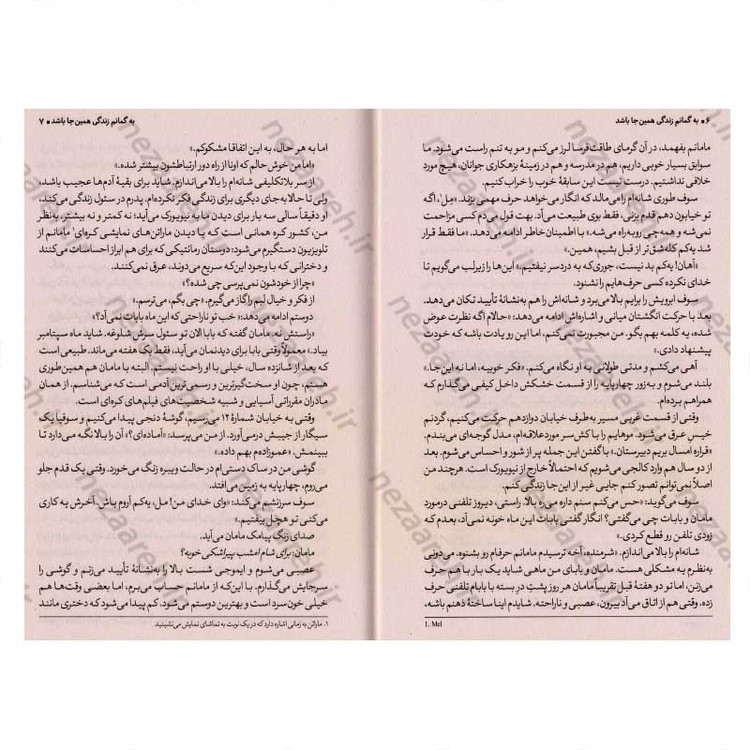 ۶ ● به گمانم زندگی همین‌جا باشد
مامانم بفهمد، در آن گرمای طاقت‌فرسا لرز می‌کنم و مو به تنم راست می‌شود. ما
سوابق بسیار خوبی داریم، هم در مدرسه و هم در زمینهٔ بزهکاری جوانان، هیچ مورد
خلافی نداشتیم. درست نیست این سابقهٔ خوب را خراب کنیم.
سوف طوری شانه‌ام را می‌مالد که انگار می‌خواهد حرف مهمی بزند. «مِل¹، اگه
تو خیابون دهم قدم بزنی، فقط بوی طبیعت می‌آد. بهت قول می‌دم کسی مزاحمت
نمی‌شه و همه‌چی روبه‌راه می‌شه.» با اطمینان‌خاطر ادامه می‌دهد. «ما فقط قرار
شد یه‌کم کله‌شق‌تر از قبل بشیم، همین.»
«آهان! یه‌کم بد نیست، جوری‌که به دردسر نیفتیم.» این‌ها را زیرلب می‌گویم تا
خدای نکرده کسی حرف‌هایم را نشنود.
سوف ابرویش را برایم بالا می‌برد و شانه‌اش را هم به‌نشانهٔ تأیید تکان می‌دهد.
بعد با حرکت انگشتان میانی و اشاره‌اش ادامه می‌دهد. «حالام اگه نظرت عوض
شده، یه کلمه بهم بگو. من مجبورت نمی‌کنم، اما این رو یادت باشه که خودت
پیشنهاد دادی.»
آهی می‌کشم و مدتی طولانی به او نگاه می‌کنم. «فکر خوبیه، اما نه این‌جا.»
بلند می‌شوم و به‌زور چهارپایه را از قسمت خشکش داخل کیفی می‌گذارم که
همراهم برده‌ام.
وقتی از قسمت غربی مسیر به‌طرف خیابان دوازدهم حرکت می‌کنیم، گردنم
خیسِ عرق می‌شود. موهایم را با کش‌سر موردعلاقه‌ام، مدل گوجه‌ای می‌بندم.
«قراره امسال بریم دبیرستان.» با گفتن این جمله پر از شور و احساس می‌شوم. بعد
از دو سال هم وارد کالجی می‌شویم که احتمالاً خارج از نیویورک است. هرچند من
اصلاً نمی‌توانم تصور کنم جایی غیر از این‌جا زندگی کنم.
سوف می‌گوید: «حس می‌کنم سنم داره می‌ره بالا. راستی، دیروز تلفنی درمورد
مامان و بابات چی می‌گفتی؟ انگار گفتی بابات این ماه خونه نمی‌آد، بعدم که
زودی تلفن رو قطع کردی.»
شانه‌ام را بالا می‌اندازم. «شرمنده، آخه ترسیدم مامانم حرفام رو بشنوه. می‌دونی
به‌نظرم یه مشکلی هست. مامان و بابای من ماهی شاید یک بار با هم حرف
می‌زنن، اما تو دو هفتهٔ قبل تقریباً مامان هر روز پشتِ درِ بسته با بابام تلفنی حرف
زده. وقتی هم از اتاق می‌آد بیرون، عصبی و ناراحته. شایدم اینا ساختهٔ ذهنم باشه،
1. Mel
به گمانم زندگی همین‌جا باشد ● ۷
اما به هر حال، به این اتفاقا مشکوکم.»
«اما من خوش‌حالم که اونا از راه دور ارتباطشون بیشتر شده.»
از سر بلاتکلیفی شانه‌ام را بالا می‌اندازم. شاید برای بقیهٔ آدم‌ها عجیب باشد،
ولی تا حالا به‌جای دیگری برای زندگی فکر نکرده‌ام. پدرم در سئول زندگی می‌کند،
او دقیقاً سالی سه بار برای دیدن ما به نیویورک می‌آید؛ نه کمتر و نه بیشتر. به‌نظر
من، کشور کره همانی است که با دیدن ماراتن‌های نمایشی کره‌ای¹ مامانم از
تلویزیون دستگیرم می‌شود: دوستان رمانتیکی که برای هم ابراز احساسات می‌کنند
و دخترانی که با وجود این‌که سریع می‌دوند، عرق نمی‌کنند.
«چرا از خودشون نمی‌پرسی چی شده؟»
از فکر و خیال بیم را گاز می‌گیرم. «چی بگم، می‌ترسم.»
دوستم ادامه می‌دهد: «خب تو ناراحتی که این ماه بابات نمی‌آد؟»
«راستش نه. مامان گفته که بابا الان تو سئول سرش شلوغه. شاید ماه سپتامبر
بیاد.» معمولاً وقتی بابا برای دیدنمان می‌آید، فقط یک هفته می‌ماند. طبیعی است
که بعد از شانزده سال، خیلی با او راحت نیستم. البته با مامان هم همین‌طوری
هستم، چون او سخت‌گیرترین و رسمی‌ترین آدمی است که می‌شناسم. از همان
مادران مقرراتی آسیایی و شبیه شخصیت‌های فیلم‌های کره‌ای است.
وقتی به خیابان شمارهٔ ۱۲ می‌رسیم، گوشهٔ دنجی پیدا می‌کنیم و سوفیا یک
سیگار از جیبش درمی‌آورد. از من می‌پرسد: «آماده‌ای؟» آن را بالا نگه می‌دارد تا
ببینمش. «عموزاده‌م بهم داده.»
گوشی من در ساک دستی‌ام در حالت ویبره زنگ می‌خورد. وقتی یک قدم جلو
می‌روم، چهارپایه به زمین می‌افتد.
سوف سرزنشم می‌کند: «وای خدای من! مل، یه‌کم آروم باش. آخرش یه کاری
می‌کنی تو هچل بیفتیم.»
صدای زنگ پیامک مامان می‌آید.
مامان: برای شام امشب پیراشکی خوبه؟
عصبی می‌شوم و ایموجی شست بالا را به‌نشانهٔ تأیید می‌زنم و گوشی را
سرجایش می‌گذارم. با این‌که از مامانم حساب می‌برم، اما بعضی وقت‌ها هم
خیلی خون‌سرد است و بهترین دوستم می‌شود. کم پیدا می‌شود که دختری مانند
۱. ماراتن به زمانی اشاره دارد که در یک نوبت به تماشای نمایش می‌نشینید.
nezaareh.ir